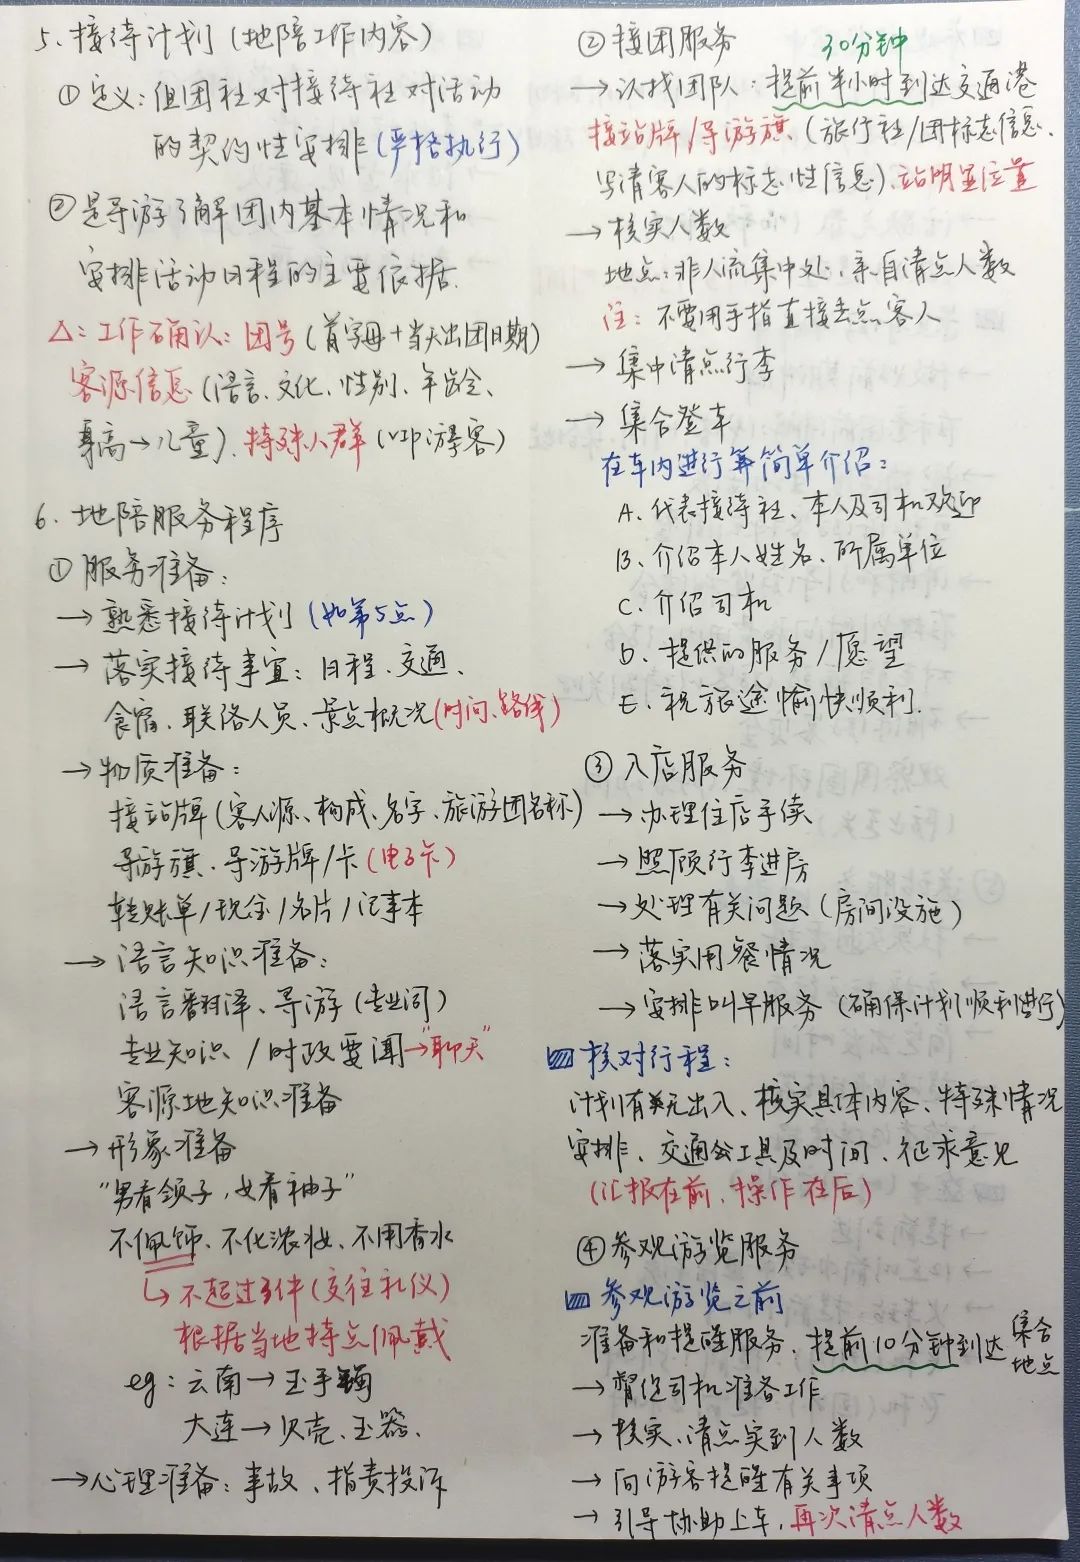 5、接待计划（地陪工作内容）
①定义：组团社对接待社对活动
的契约性安排（严格执行）
②是导游了解团内基本情况和
安排活动日程的主要依据.
△：工作确认：团号（首字母+当天出团日期）
客源信息（语言、文化、性别、年龄、
身高→儿童）、特殊人群（VIP游客）
6、地陪服务程序
①服务准备：
→熟悉接待计划（如第5点）
→落实接待事宜：日程、交通、
食宿、联络人员、景点概况（时间、路线）
→物质准备：
接站牌（客人源、构成、名字、旅游团名称）
导游旗、导游牌/卡（电子卡）
转账单/现金/名片/记事本
→语言知识准备：
语言翻译、导游（专业词）
专业知识/时政要闻→“聊天”
客源地知识准备
→形象准备
“男看领子，女看袖子”
不佩饰、不化浓妆、不用香水
↳不超过3件（交往礼仪）
根据当地特点佩戴
eg：云南→玉手镯
大连→贝壳、玉器、
→心理准备：事故、指责投诉
②接团服务 30分钟
→认找团队：提前半小时到达交通港
接站牌/导游旗（旅行社/团标志信息、
写清客人的标志性信息）、站明显位置
→核实人数
地点：非人流集中处、亲自清点人数
注：不要用手指直接去点客人
→集中清点行李
→集合登车
在车内进行简单介绍：
A、代表接待社、本人及司机欢迎
B、介绍本人姓名、所属单位
C、介绍司机
D、提供的服务/愿望
E、祝旅途愉快顺利.
③入店服务
→办理住店手续
→照顾行李进房
→处理有关问题（房间设施）
→落实用餐情况
→安排叫早服务（确保计划顺利进行）
核对行程：
计划有无出入、核实具体内容、特殊情况
安排、交通工具及时间、征求意见
（汇报在前，操作在后）
④参观游览服务
参观游览之前
准备和提醒服务、提前10分钟到达集合地点
→督促司机准备工作
→核实、清点实到人数
→向游客提醒有关事项
→引导协助上车，再次清点人数